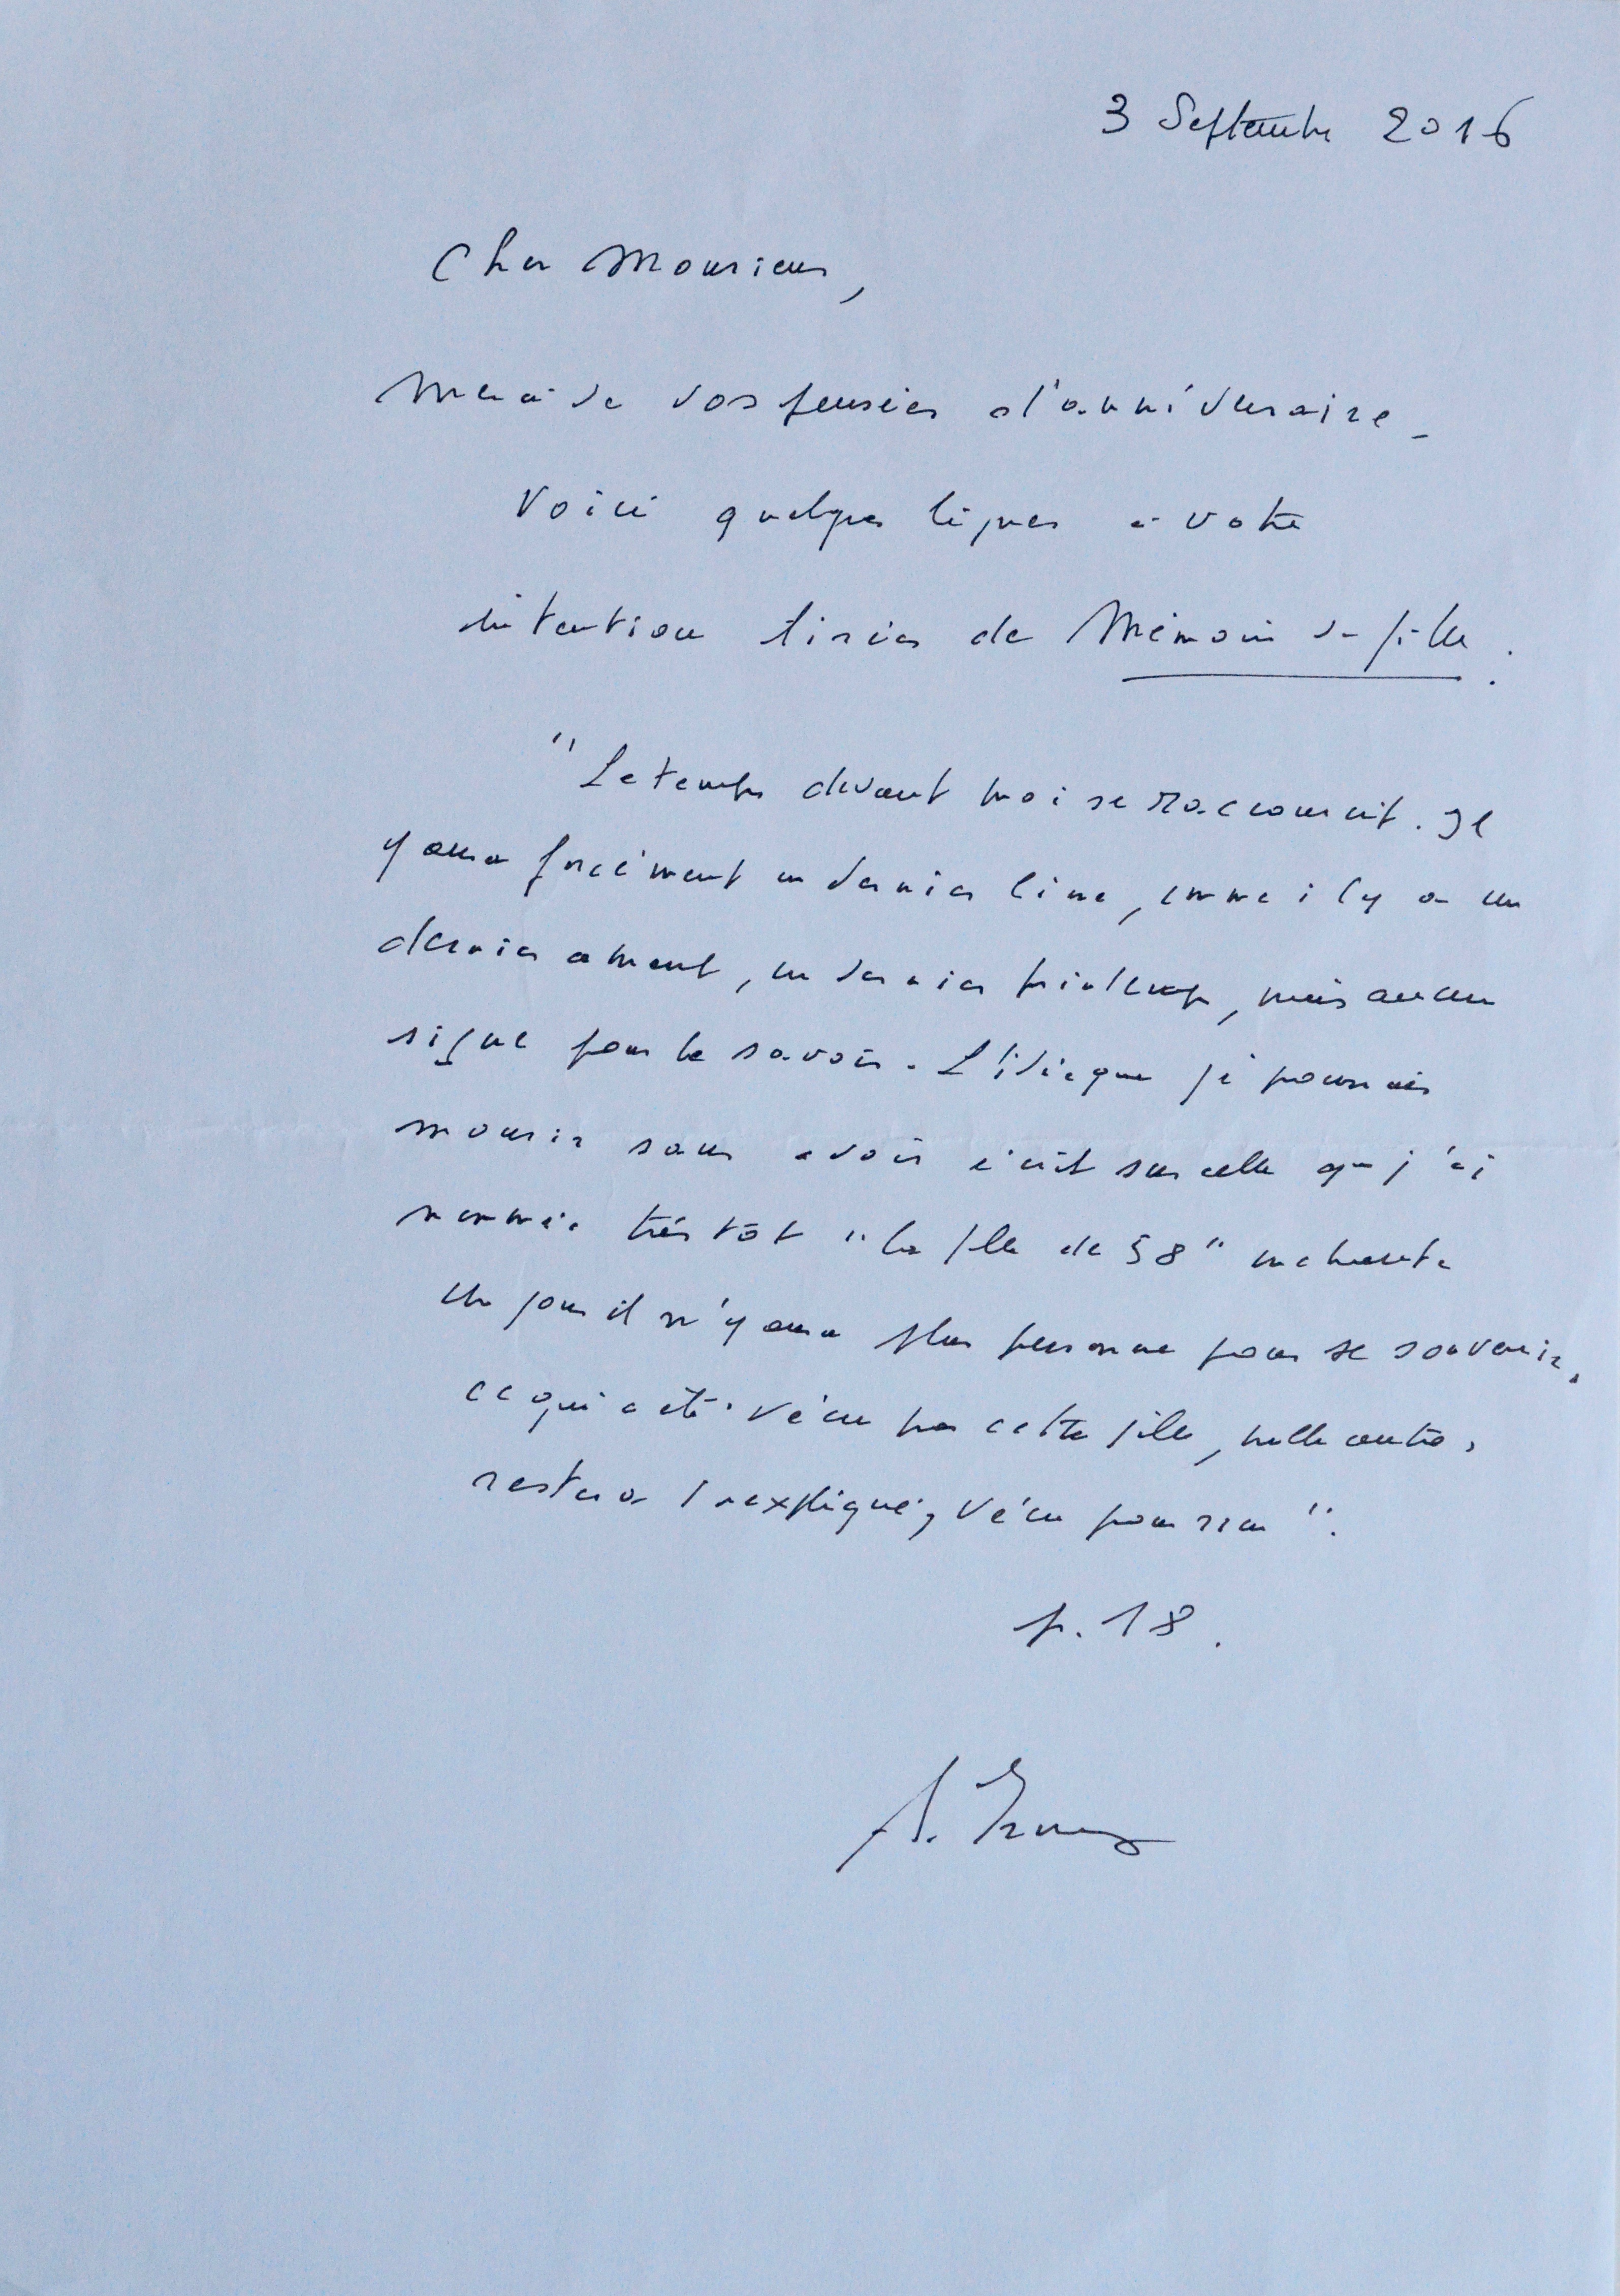 3 Septembre 2016
Cher Monsieur,
Merci de vos pensées d'anniversaire.
Voici quelques lignes à votre
intention tirées de Mémoire de fille :
"Le temps devant moi se raccourcit. Il
y aura forcément un dernier livre, comme il y a un
dernier amant, un dernier printemps, mais aucun
signe pour le savoir. L'idée que je pourrais
mourir sans avoir écrit sur celle que j'ai
nommée très tôt "la fille de 58" me hante.
Un jour il n'y aura plus personne pour se souvenir.
Ce qui a été vécu par cette fille, nulle autre,
restera inexpliqué, vécu pour rien".
p. 18.
A. Ernaux